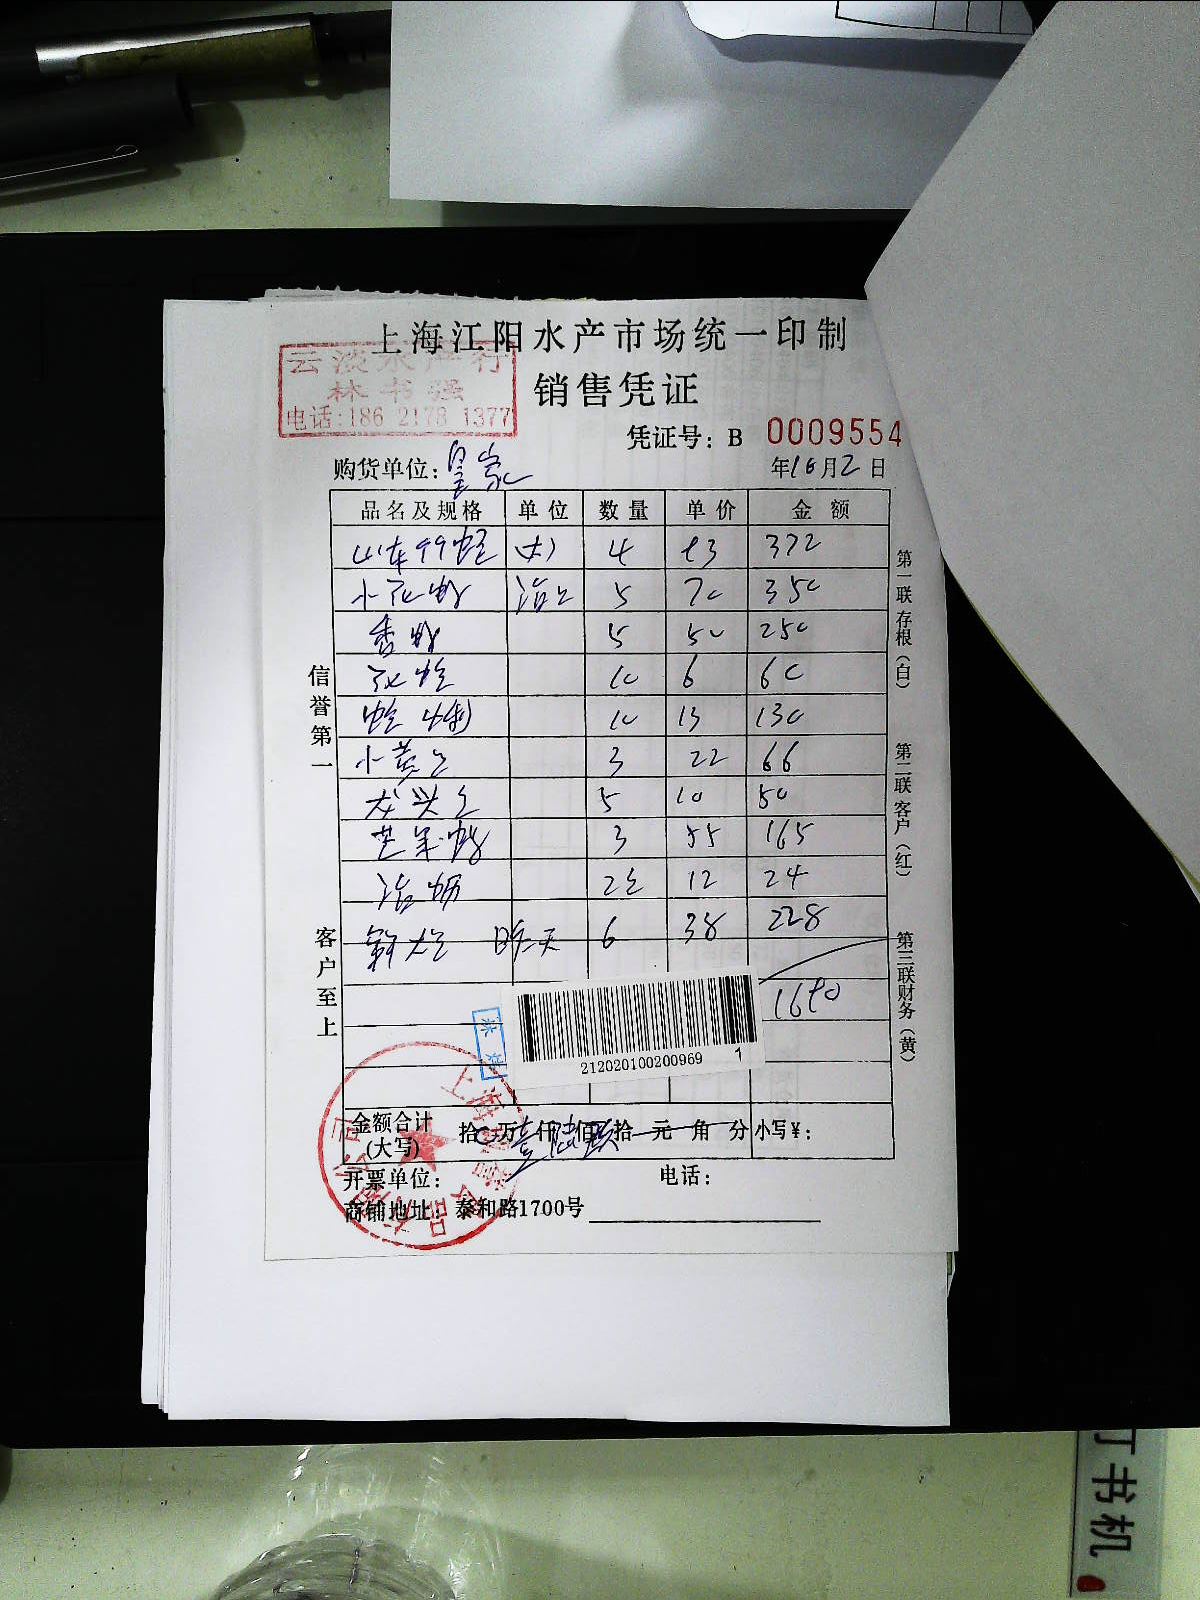 上海江阳水产市场统一印制
云淡水产行
林书强
电话:186 2178 1377
销售凭证
凭证号: B 0009554
购货单位: 皇家
年10月2日
品名及规格 单位 数量 单价 金额
山东99蛏 (大) 4 93 372
小花蛤 5 70 350
香螺 5 50 250
花蛤 10 6 60
10 13 130
小黄鱼 3 22 66
龙头鱼 5 10 50
芒果螺 3 55 165
2 12 24
昨天 6 38 228
1690
212020100200969 1
金额合计
(大写) 拾 万壹仟陆佰玖拾 元 角 分 小写¥:
开票单位: 电话:
商铺地址: 泰和路1700号
信誉第一
客户至上
第一联 存根(白)
第二联 客户(红)
第三联 财务(黄)
订书机